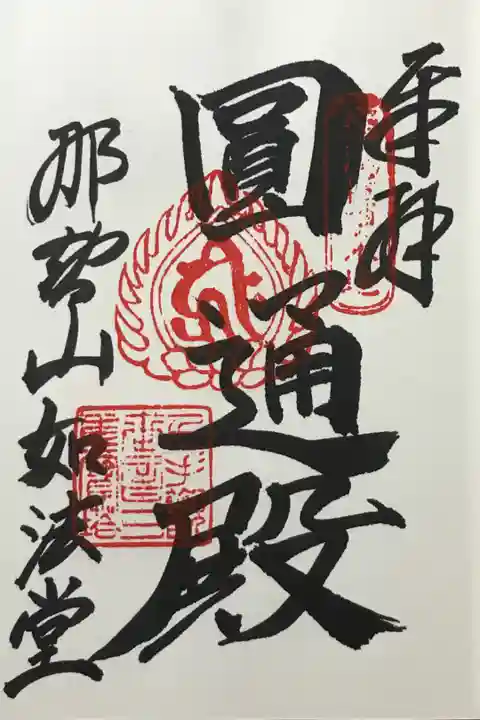 奉拜
圓通殿
那智山如法堂